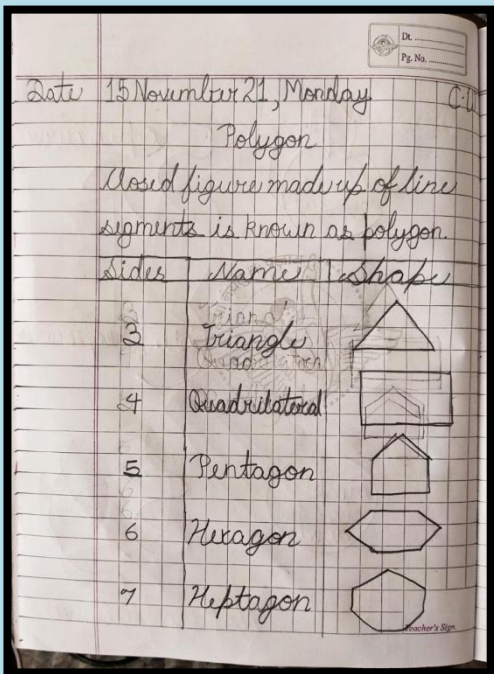 Dt.
Pg. No.
Date 15 November 21, Monday C.W
Polygon
Closed figure made up of line
segments is known as polygon.
Sides Name Shape
3 Triangle
4 Quadrilateral
5 Pentagon
6 Hexagon
7 Heptagon
Teacher's Sign